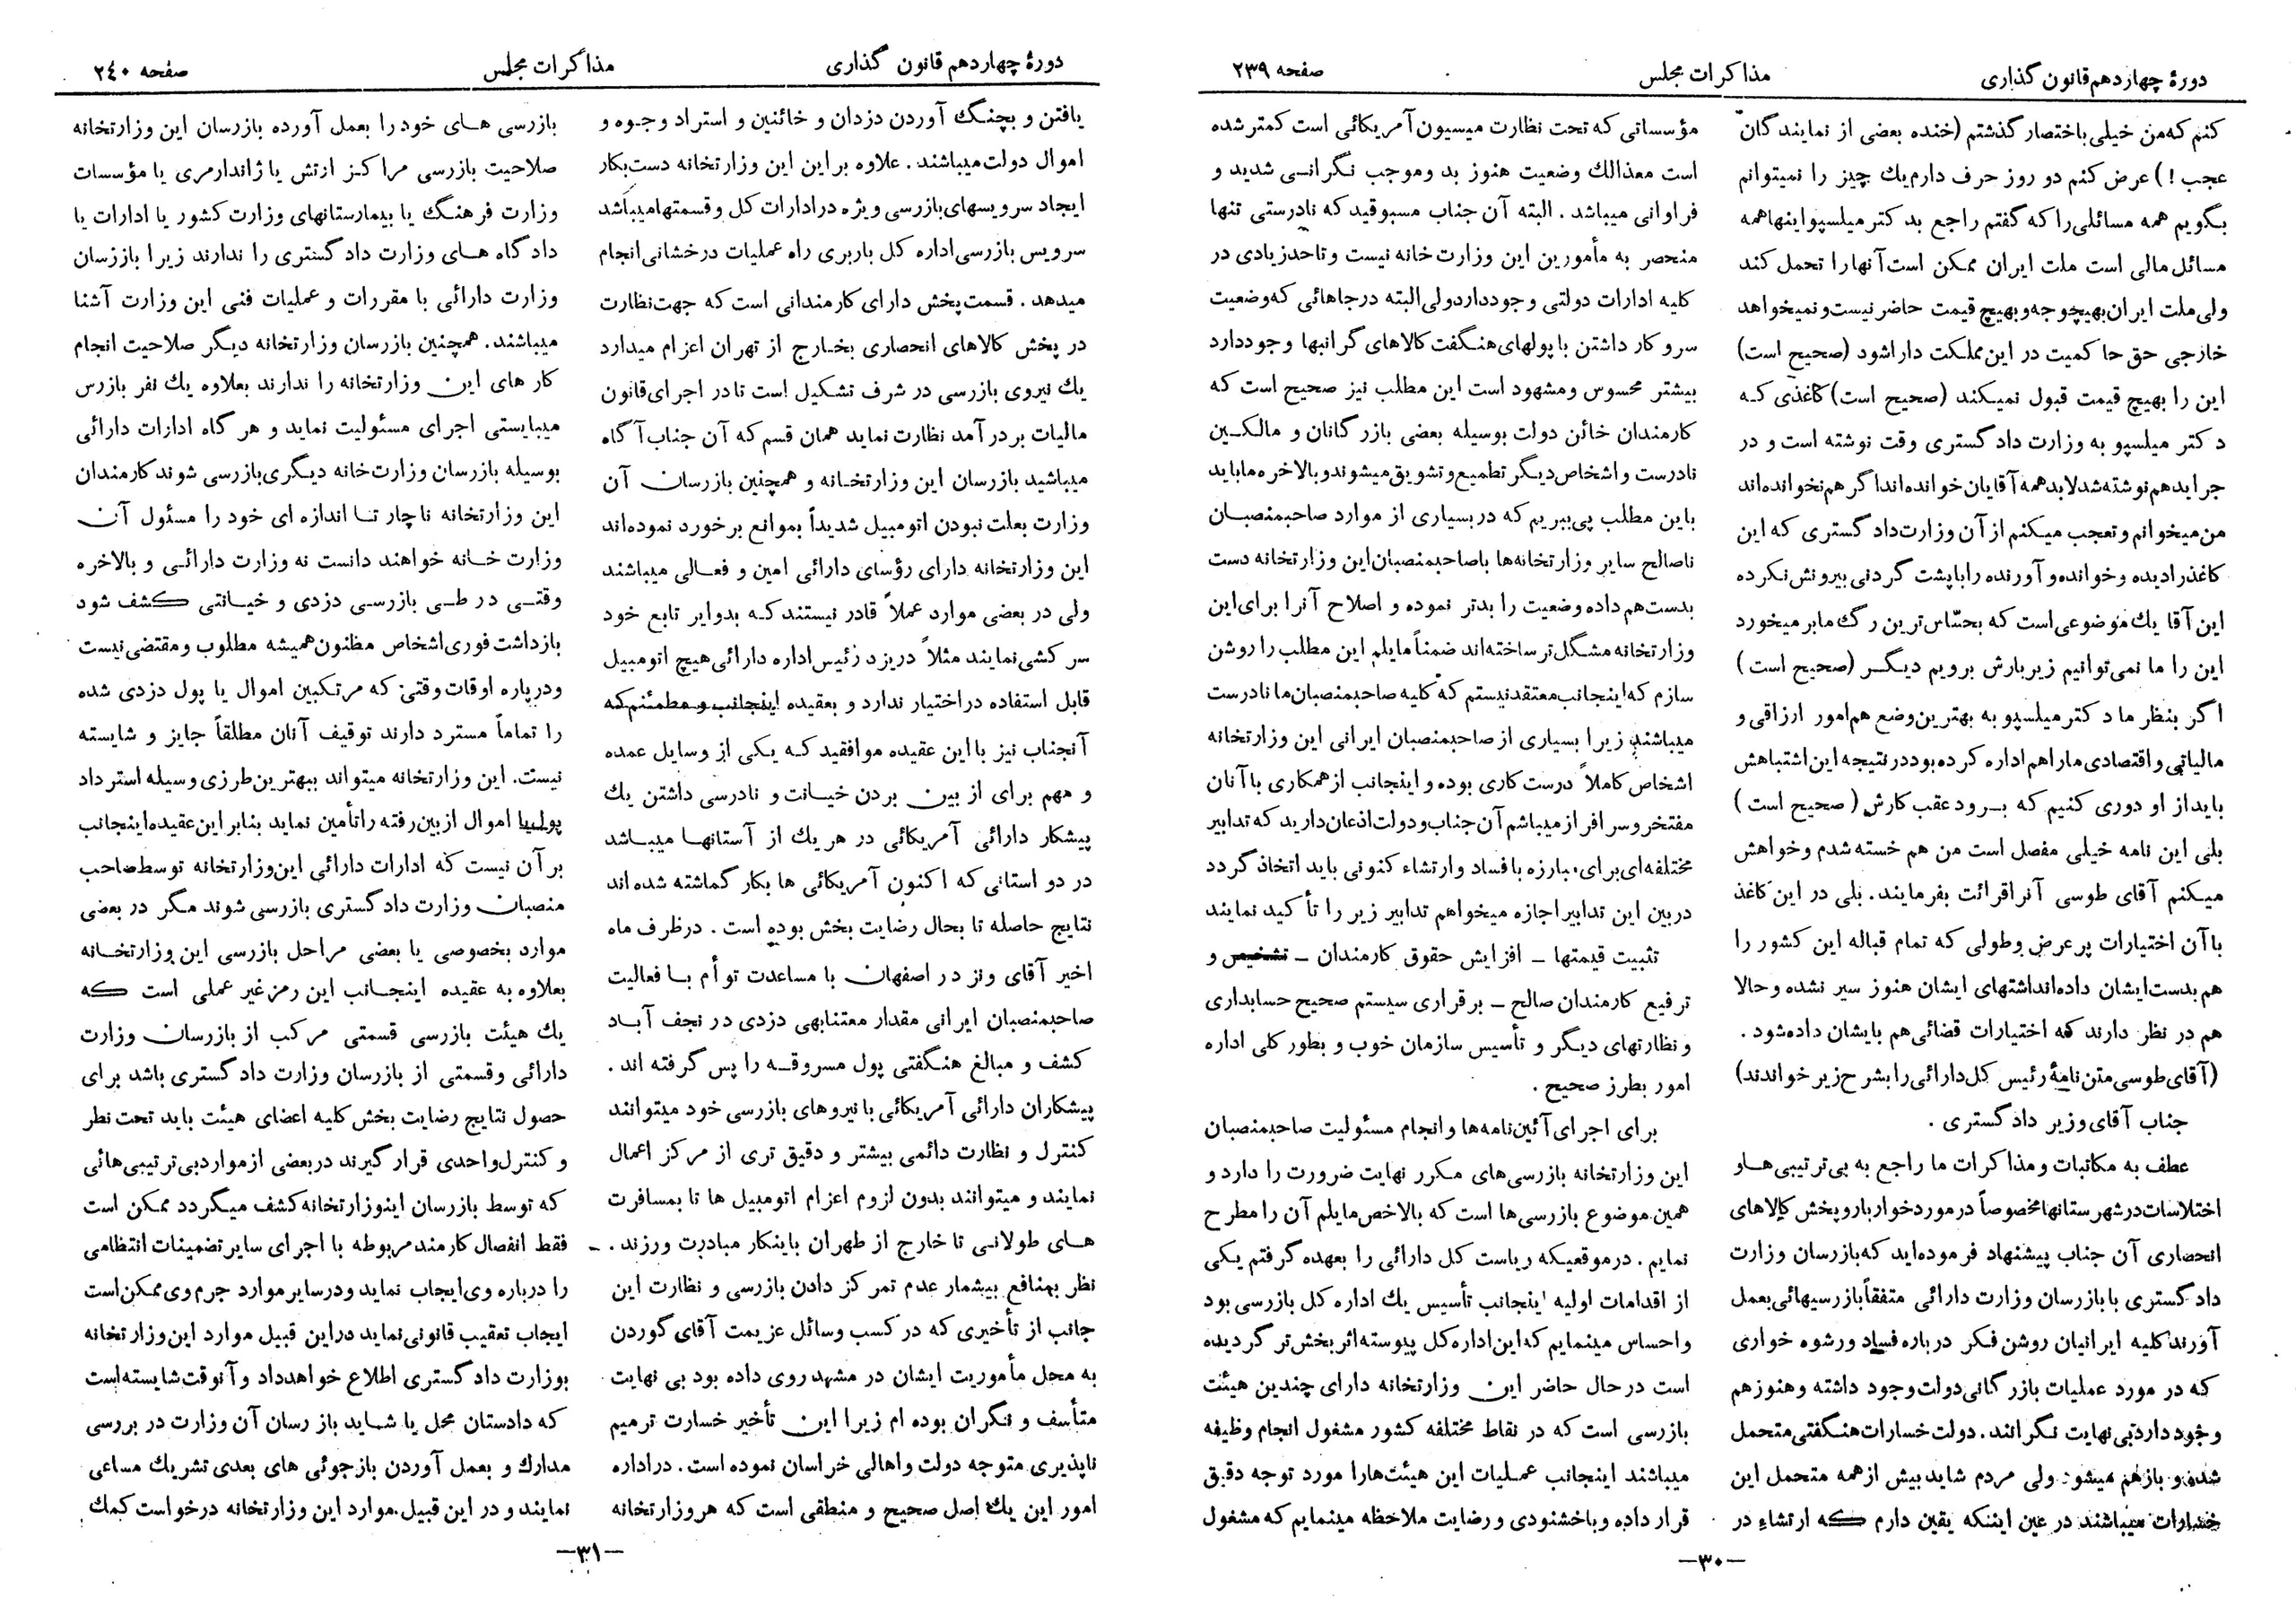 دورهٔ چهاردهم قانون گذاری
مذاکرات مجلس
صفحه ۲۳۹
کنم که من خیلی باختصار گذشتم (خنده بعضی از نمایندگان
عجب !) عرض کنم دو روز حرف دارم یك چیز را نمیتوانم
بگویم همه مسائلی را که گفتم راجع بدکتر میلسپو اینها همه
مسائل مالی است ملت ایران ممکن است آنها را تحمل کند
ولی ملت ایران بهیچوجه و بهیچ قیمت حاضر نیست و نمیخواهد
خارجی حق حاکمیت در این مملکت دارا شود (صحیح است)
این را بهیچ قیمت قبول نمیکند (صحیح است) کاغذی که
دکتر میلسپو به وزارت دادگستری وقت نوشته است و در
جراید هم نوشته شد لابد همه آقایان خوانده‌اند اگر هم نخوانده‌اند
من میخوانم و تعجب میکنم از آن وزارت دادگستری که این
کاغذ را دیده و خوانده و آورنده را با پشت گردنی بیرونش نکرده
این آقا یك موضوعی است که بحسّاس‌ترین رگ ما بر میخورد
این را ما نمی‌توانیم زیر بارش برویم دیگر (صحیح است)
اگر بنظر ما دکتر میلسپو به بهترین وضع هم امور ارزاقی و
مالیاتی و اقتصادی ما را هم اداره کرده بود در نتیجه این اشتباهش
باید از او دوری کنیم که برود عقب کارش (صحیح است)
بلی این نامه خیلی مفصل است من هم خسته شدم و خواهش
میکنم آقای طوسی آنرا قرائت بفرمایند. بلی در این کاغذ
با آن اختیارات پر عرض و طولی که تمام قباله این کشور را
هم بدست ایشان داده‌اند اشتهای ایشان هنوز سیر نشده و حالا
هم در نظر دارند که اختیارات قضائی هم بایشان داده شود .
(آقای طوسی متن نامهٔ رئیس کل دارائی را بشرح زیر خواندند)
جناب آقای وزیر دادگستری .
عطف به مکاتبات و مذاکرات ما راجع به بی‌ترتیبی‌ها و
اختلاسات در شهرستانها مخصوصاً در مورد خواربار و پخش کالاهای
انحصاری آن جناب پیشنهاد فرموده‌اید که بازرسان وزارت
دادگستری با بازرسان وزارت دارائی متفقاً بازرسیهائی بعمل
آورند کلیه ایرانیان روشن فکر درباره فساد و رشوه خواری
که در مورد عملیات بازرگانی دولت وجود داشته و هنوز هم
وجود دارد بی نهایت نگرانند. دولت خسارات هنگفتی متحمل
شده و باز هم میشود ولی مردم شاید بیش از همه متحمل این
خسارات میباشند در عین اینکه یقین دارم که ارتشاء در
مؤسساتی که تحت نظارت میسیون آمریکائی است کمتر شده
است معذالك وضعیت هنوز بد و موجب نگرانی شدید و
فراوانی میباشد . البته آن جناب مسبوقید که نادرستی تنها
منحصر به مأمورین این وزارت خانه نیست و تا حد زیادی در
کلیه ادارات دولتی وجود دارد ولی البته در جاهائی که وضعیت
سروکار داشتن با پولهای هنگفت کالاهای گرانبها وجود دارد
بیشتر محسوس و مشهود است این مطلب نیز صحیح است که
کارمندان خائن دولت بوسیله بعضی بازرگانان و مالکین
نادرست و اشخاص دیگر تطمیع و تشویق میشوند و بالاخره ما باید
باین مطلب پی‌ببریم که در بسیاری از موارد صاحبمنصبان
ناصالح سایر وزارتخانه‌ها با صاحبمنصبان این وزارتخانه دست
بدست هم داده وضعیت را بدتر نموده و اصلاح آنرا برای این
وزارتخانه مشگل‌تر ساخته‌اند ضمناً مایلم این مطلب را روشن
سازم که اینجانب معتقد نیستم که کلیه صاحبمنصبان ما نادرست
میباشند زیرا بسیاری از صاحبمنصبان ایرانی این وزارتخانه
اشخاص کاملاً درست کاری بوده و اینجانب از همکاری با آنان
مفتخر و سرافراز میباشم آن جناب و دولت اذعان دارید که تدابیر
مختلفه‌ای برای مبارزه با فساد و ارتشاء کنونی باید اتخاذ گردد
در بین این تدابیر اجازه میخواهم تدابیر زیر را تأکید نمایند
تثبیت قیمتها ـ افزایش حقوق کارمندان ـ تشخیص و
ترفیع کارمندان صالح ـ برقراری سیستم صحیح حسابداری
و نظارتهای دیگر و تأسیس سازمان خوب و بطور کلی اداره
امور بطرز صحیح .
برای اجرای آئین‌نامه‌ها و انجام مسئولیت صاحبمنصبان
این وزارتخانه بازرسی‌های مکرر نهایت ضرورت را دارد و
همین موضوع بازرسی‌ها است که بالاخص مایلم آن را مطرح
نمایم . در موقعیکه ریاست کل دارائی را بعهده گرفتم یکی
از اقدامات اولیه اینجانب تأسیس یك اداره کل بازرسی بود
و احساس مینمایم که این اداره کل پیوسته اثر بخش‌تر گردیده
است در حال حاضر این وزارتخانه دارای چندین هیئت
بازرسی است که در نقاط مختلفه کشور مشغول انجام وظیفه
میباشند اینجانب عملیات این هیئت‌ها را مورد توجه دقیق
قرار داده و با خشنودی و رضایت ملاحظه مینمایم که مشغول
ـ۳۰ـ
دورهٔ چهاردهم قانون گذاری
مذاکرات مجلس
صفحه ۲۴۰
یافتن و بچنگ آوردن دزدان و خائنین و استراد وجوه و
اموال دولت میباشند . علاوه بر این این وزارتخانه دست بکار
ایجاد سرویسهای بازرسی ویژه در ادارات کل و قسمتها میباشد
سرویس بازرسی اداره کل باربری راه عملیات درخشانی انجام
میدهد . قسمت پخش دارای کارمندانی است که جهت نظارت
در پخش کالاهای انحصاری بخارج از تهران اعزام میدارد
یك نیروی بازرسی در شرف تشکیل است تا در اجرای قانون
مالیات بردرآمد نظارت نماید همان قسم که آن جناب آگاه
میباشید بازرسان این وزارتخانه و همچنین بازرسان آن
وزارت بعلت نبودن اتومبیل شدیداً بموانع برخورد نموده‌اند
این وزارتخانه دارای رؤسای دارائی امین و فعالی میباشند
ولی در بعضی موارد عملاً قادر نیستند که بدوایر تابع خود
سرکشی نمایند مثلاً در یزد رئیس اداره دارائی هیچ اتومبیل
قابل استفاده در اختیار ندارد و بعقیده اینجانب و مطمئنم که
آنجناب نیز با این عقیده موافقید که یکی از وسایل عمده
و مهم برای از بین بردن خیانت و نادرسی داشتن یك
پیشکار دارائی آمریکائی در هر یك از آستانها میباشد
در دو استانی که اکنون آمریکائی ها بکار گماشته شده اند
نتایج حاصله تا بحال رضایت بخش بوده است . در ظرف ماه
اخیر آقای ونز در اصفهان با مساعدت توأم با فعالیت
صاحبمنصبان ایرانی مقدار معتنابهی دزدی در نجف آباد
کشف و مبالغ هنگفتی پول مسروقه را پس گرفته اند .
پیشکاران دارائی آمریکائی با نیروهای بازرسی خود میتوانند
کنترل و نظارت دائمی بیشتر و دقیق تری از مرکز اعمال
نمایند و میتوانند بدون لزوم اعزام اتومبیل ها تا بمسافرت
های طولانی تا خارج از طهران باینکار مبادرت ورزند .
نظر بمنافع بیشمار عدم تمرکز دادن بازرسی و نظارت این
جانب از تأخیری که در کسب وسائل عزیمت آقای گوردن
به محل مأموریت ایشان در مشهد روی داده بود بی نهایت
متأسف و نگران بوده ام زیرا این تأخیر خسارت ترمیم
ناپذیری متوجه دولت و اهالی خراسان نموده است . در اداره
امور این یك اصل صحیح و منطقی است که هر وزارتخانه
بازرسی های خود را بعمل آورده بازرسان این وزارتخانه
صلاحیت بازرسی مراکز ارتش یا ژاندارمری یا مؤسسات
وزارت فرهنگ یا بیمارستانهای وزارت کشور یا ادارات یا
دادگاه های وزارت دادگستری را ندارند زیرا بازرسان
وزارت دارائی با مقررات و عملیات فنی این وزارت آشنا
میباشند. همچنین بازرسان وزارتخانه دیگر صلاحیت انجام
کار های این وزارتخانه را ندارند بعلاوه یك نفر بازرس
میبایستی اجرای مسئولیت نماید و هر گاه ادارات دارائی
بوسیله بازرسان وزارت‌خانه دیگری بازرسی شوند کارمندان
این وزارتخانه ناچار تا اندازه ای خود را مسئول آن
وزارت خانه خواهند دانست نه وزارت دارائی و بالاخره
وقتی در طی بازرسی دزدی و خیانتی کشف شود
بازداشت فوری اشخاص مظنون همیشه مطلوب و مقتضی نیست
و در پاره اوقات وقتی که مرتکبین اموال یا پول دزدی شده
را تماماً مسترد دارند توقیف آنان مطلقاً جایز و شایسته
نیست. این وزارتخانه میتواند ببهترین طرزی وسیله استرداد
پول یا اموال از بین رفته را تأمین نماید بنابر این عقیده اینجانب
بر آن نیست که ادارات دارائی این وزارتخانه توسط صاحب
منصبان وزارت دادگستری بازرسی شوند مگر در بعضی
موارد بخصوصی یا بعضی مراحل بازرسی این وزارتخانه
بعلاوه به عقیده اینجانب این رمز غیر عملی است که
یك هیئت بازرسی قسمتی مرکب از بازرسان وزارت
دارائی و قسمتی از بازرسان وزارت دادگستری باشد برای
حصول نتایج رضایت بخش کلیه اعضای هیئت باید تحت نظر
و کنترل واحدی قرار گیرند در بعضی از موارد بی‌ترتیبی‌هائی
که توسط بازرسان اینوزارتخانه کشف میگردد ممکن است
فقط انفصال کارمند مربوطه با اجرای سایر تضمینات انتظامی
را درباره وی ایجاب نماید و در سایر موارد جرم وی ممکن است
ایجاب تعقیب قانونی نماید در این قبیل موارد این وزارتخانه
بوزارت دادگستری اطلاع خواهد داد و آنوقت شایسته است
که دادستان محل یا شاید بازرسان آن وزارت در بررسی
مدارك و بعمل آوردن بازجوئی های بعدی تشریك مساعی
نمایند و در این قبیل موارد این وزارتخانه درخواست کمك
ـ۳۱ـ